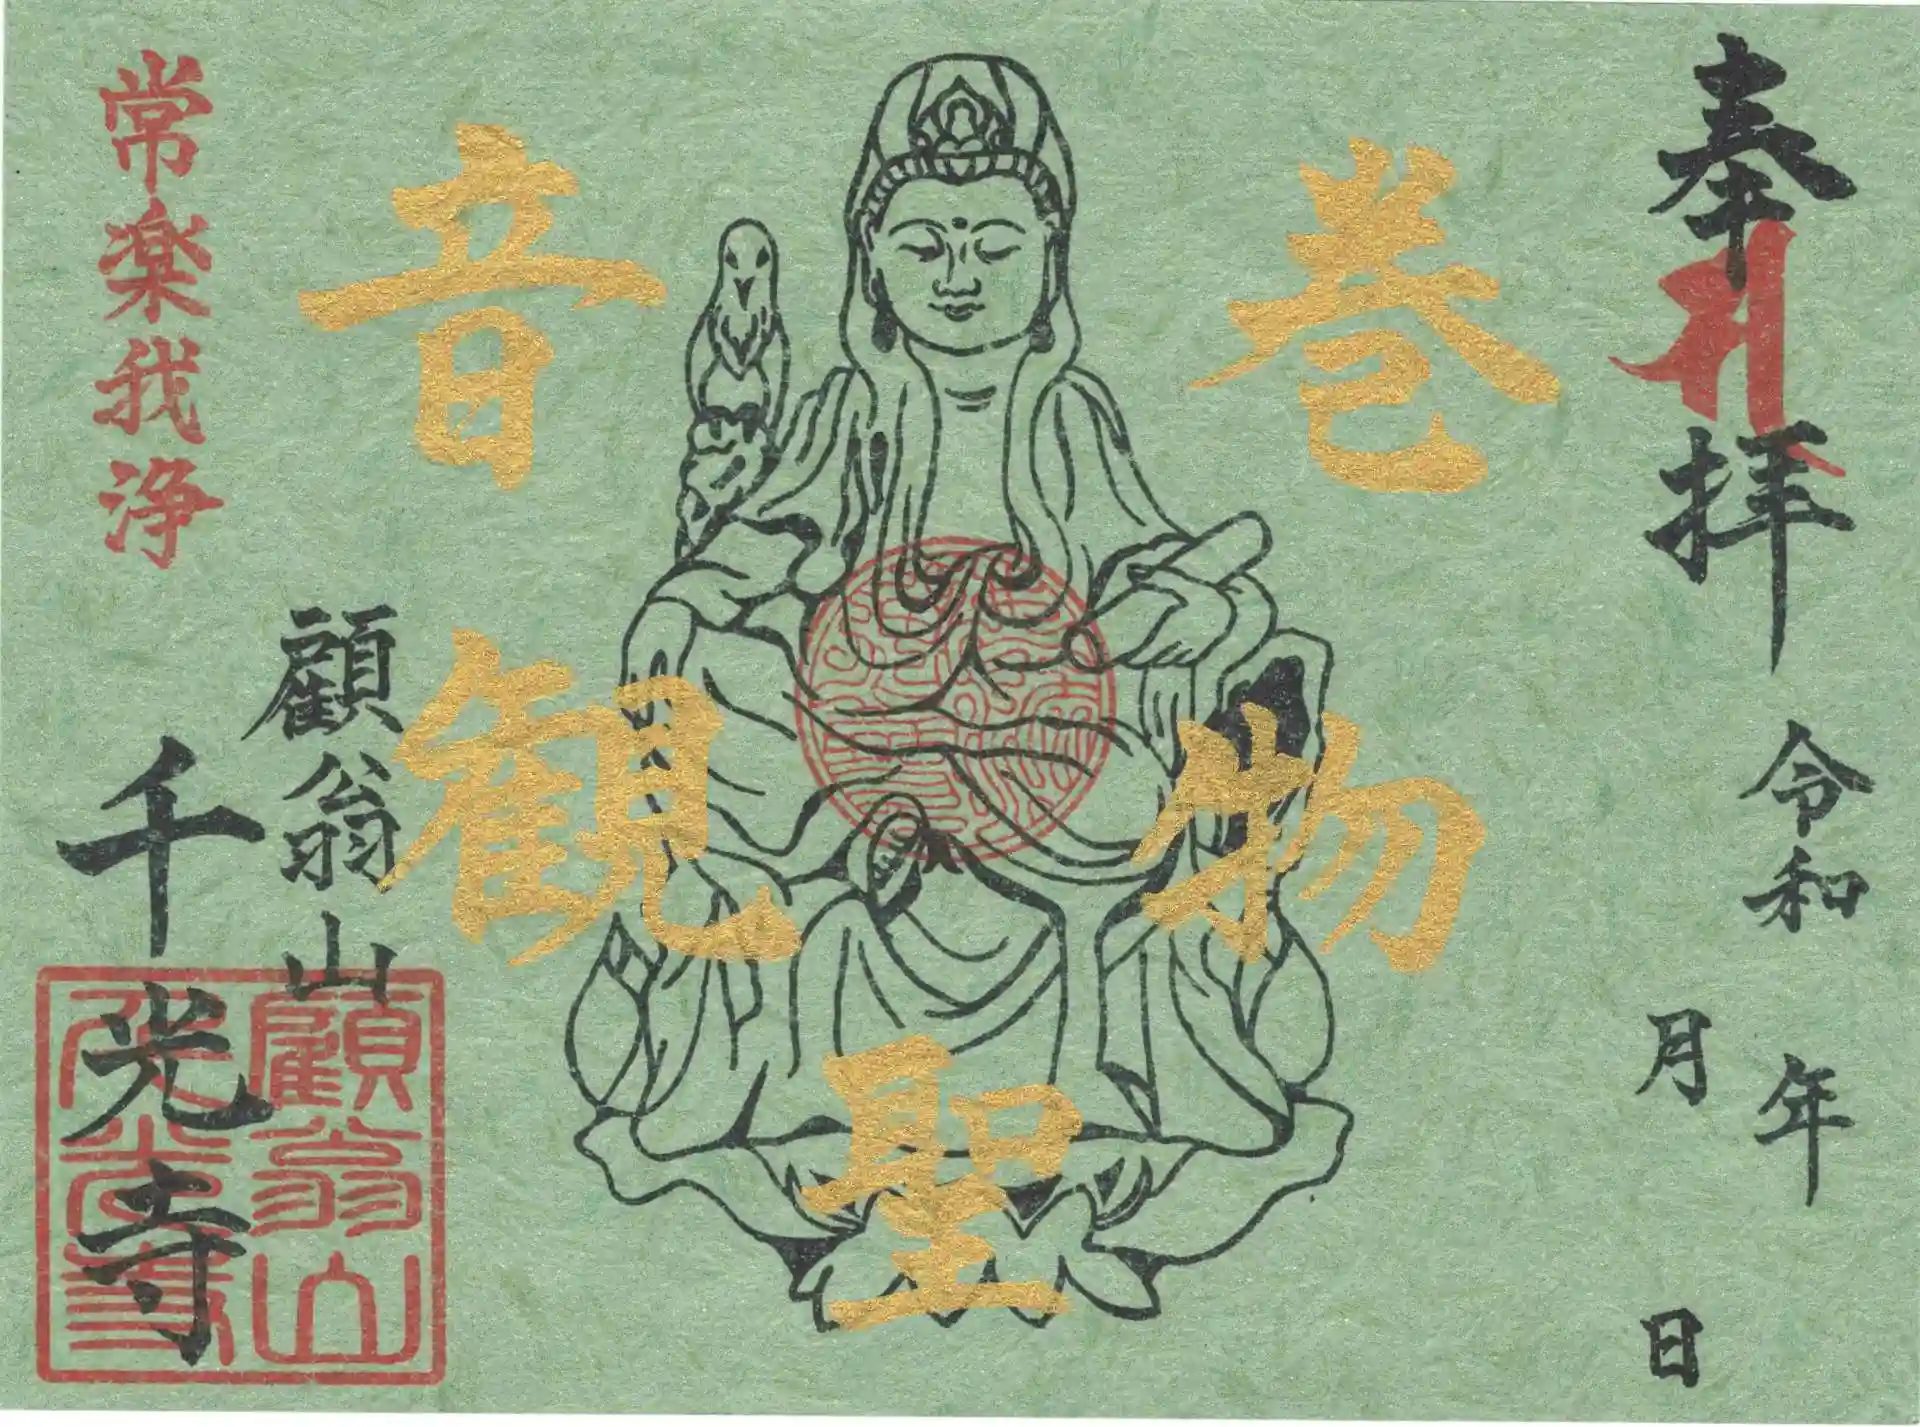 奉拝
令和 年
月 日
巻物聖観音
常楽我浄
顧翁山
千光寺
顧翁山
千光寺